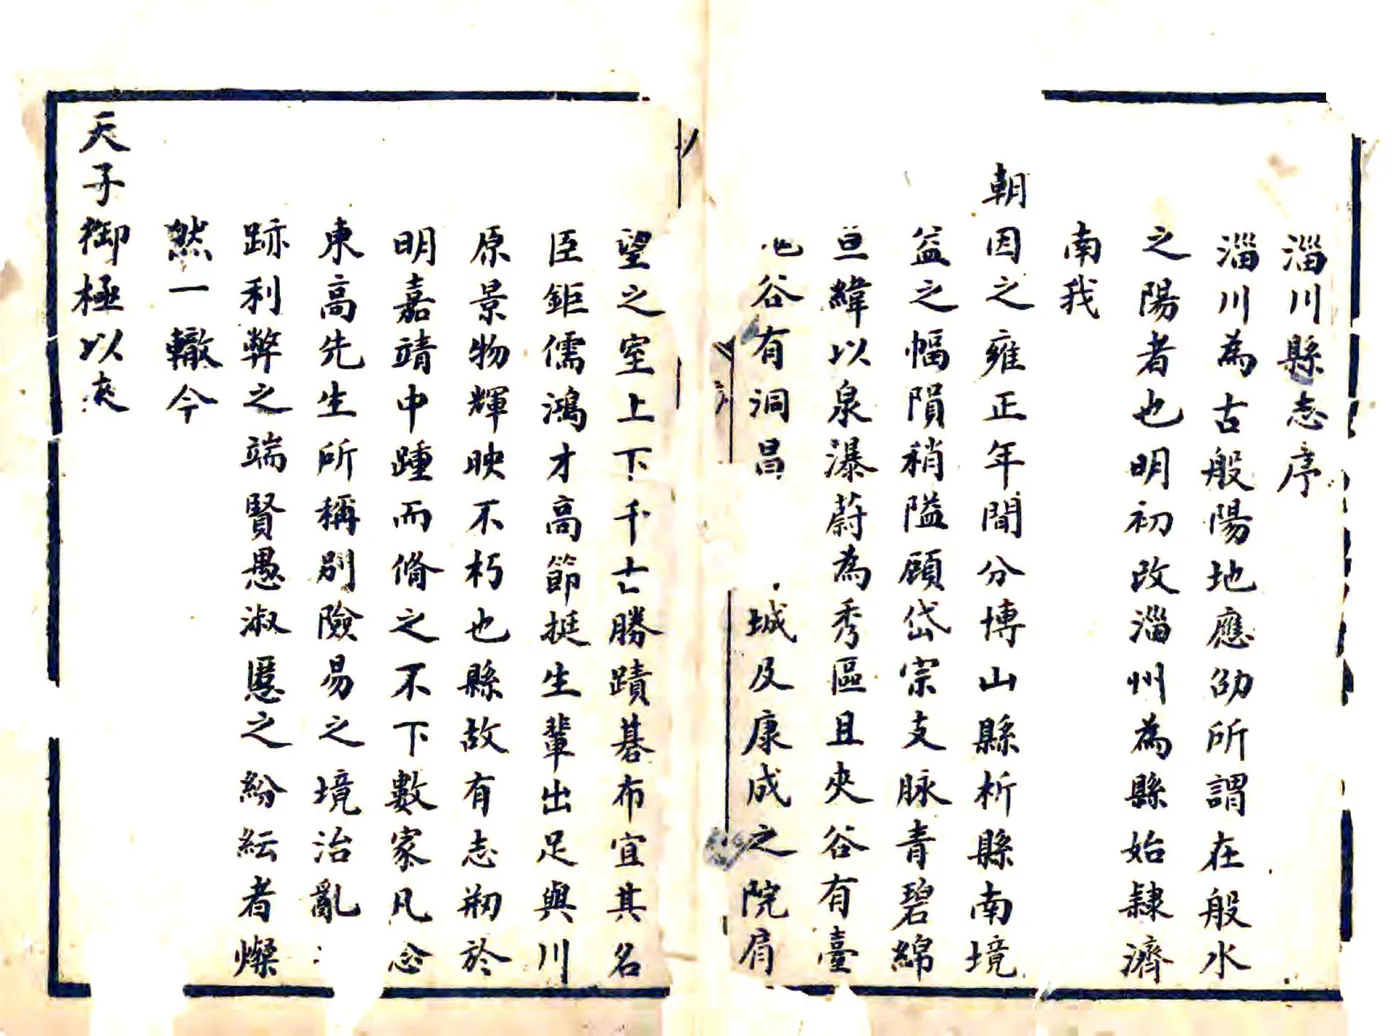 淄川縣志序
淄川為古般陽地應劭所謂在般水
之陽者也明初改淄州為縣始隸濟
南我
朝因之雍正年間分博山縣析縣南境
益之幅隕稍隘顧岱宗支脉青碧綿
亘緯以泉瀑蔚為秀區且夾谷有臺
谷有洞昌城及康成之院肩
望之室上下千古勝蹟碁布宜其名
臣鉅儒鴻才高節挺生輩出足與川
原景物輝映不朽也縣故有志剏於
明嘉靖中踵而脩之不下數家凡念
東高先生所稱別險易之境治亂
跡利弊之端賢愚淑慝之紛紜者燦
然一轍今
天子御極以來